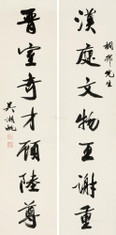 桐邨先生
漢庭文物王謝重
晉室奇才顧陸尊
吳湖帆